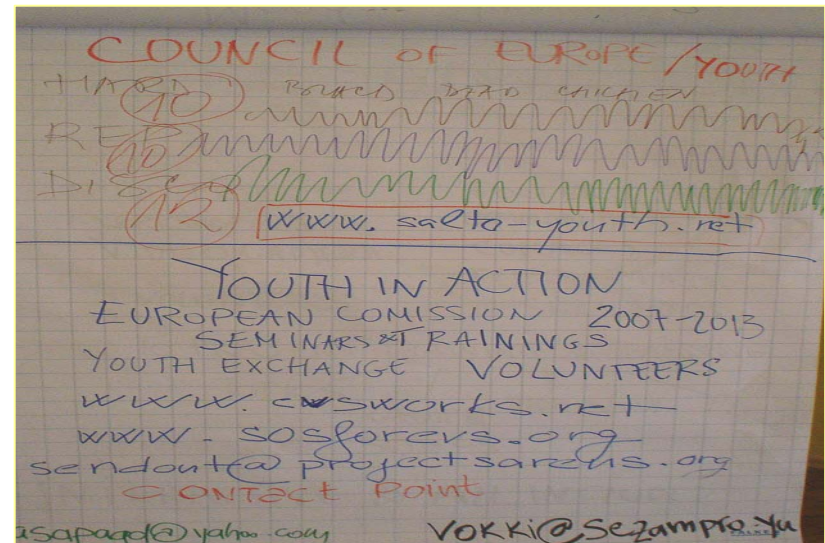 COUNCIL OF EUROPE/YOUTH
HARD 10 CHICKEN
RED 10
DISCO 12
www.salta-youth.net
YOUTH IN ACTION
EUROPEAN COMISSION 2007-2013
SEMINARS & TRAININGS
YOUTH EXCHANGE VOLUNTEERS
www.evsworks.net
www.sosforevs.org
sendout@projectsarens.org
CONTACT POINT
asapagd@yahoo.com VOKKi@Sezampro.yu